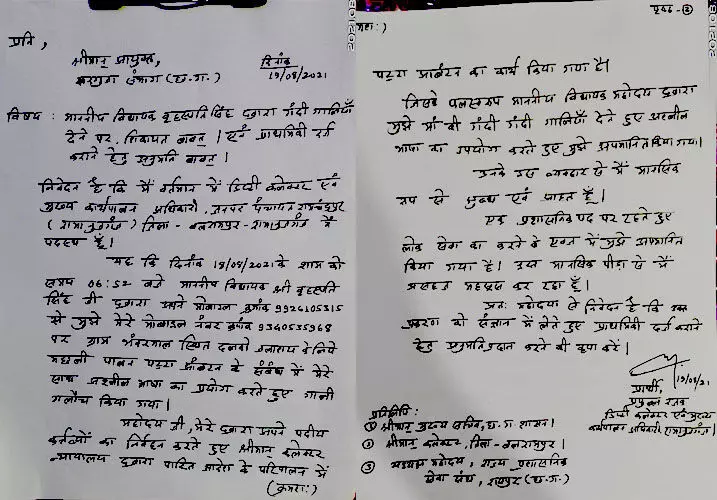 प्रति,
श्रीमान् आयुक्त,
सरगुजा संभाग (छ.ग.)
दिनांक
19/08/2021
विषय : माननीय विधायक बृहस्पति सिंह द्वारा गंदी गालियाँ
देने पर, शिकायत बाबत् । एवं प्राथमिकी दर्ज
कराने हेतु अनुमति बाबत् ।
निवेदन है कि मैं वर्तमान में डिप्टी कलेक्टर एवं
मुख्य कार्यपालन अधिकारी, जनपद पंचायत रामचंद्रपुर
(रामानुजगंज) जिला - बलरामपुर - रामानुजगंज में
पदस्थ हूँ ।
यह कि दिनांक 18/08/2021 के शाम को
समय 06:52 बजे माननीय विधायक श्री बृहस्पति
सिंह जी द्वारा अपने मोबाइल क्रमांक 9926105315
से मुझे मेरे मोबाइल नंबर क्रमांक 9340535968
पर ग्राम भंवरमाल स्थित दलको तालाब के लिये
मछली पालन पट्टा आबंटन के संबंध में मेरे
साथ अश्लील भाषा का प्रयोग करते हुए गाली
गलौच किया गया ।
महोदय जी, मेरे द्वारा अपने पदीय
कर्तव्यों का निर्वहन करते हुए श्रीमान् कलेक्टर
न्यायालय द्वारा पारित आदेश के परिपालन में
(क्रमश:)
पृष्ठ - 2
पट्टा आबंटन का कार्य किया गया है।
जिसके फलस्वरूप माननीय विधायक महोदय द्वारा
मुझे माँ की गंदी गंदी गालियाँ देते हुए अश्लील
भाषा का उपयोग करते हुए मुझे अपमानित किया गया।
उनके उक्त व्यवहार से मैं मानसिक
रूप से क्षुब्ध एवं आहत हूँ ।
एक प्रशासनिक पद पर रहते हुए
लोक सेवा का करते के एवज में मुझे अपमानित
किया गया है। उक्त मानसिक पीड़ा से मैं
असहज महसूस कर रहा हूँ ।
अतः महोदय से निवेदन है कि उक्त
प्रकरण को संज्ञान में लेते हुए प्राथमिकी दर्ज कराने
हेतु अनुमति प्रदान करने की कृपा करें ।
19/08/21
प्रार्थी,
डिप्टी कलेक्टर एवं मुख्य
कार्यपालन अधिकारी, रामानुजगंज
प्रतिलिपि :
① श्रीमान् मुख्य सचिव, छ.ग. शासन ।
② श्रीमान् कलेक्टर, जिला - बलरामपुर ।
③ अध्यक्ष महोदय, राज्य प्रशासनिक
सेवा संघ, रायपुर (छ.ग.)